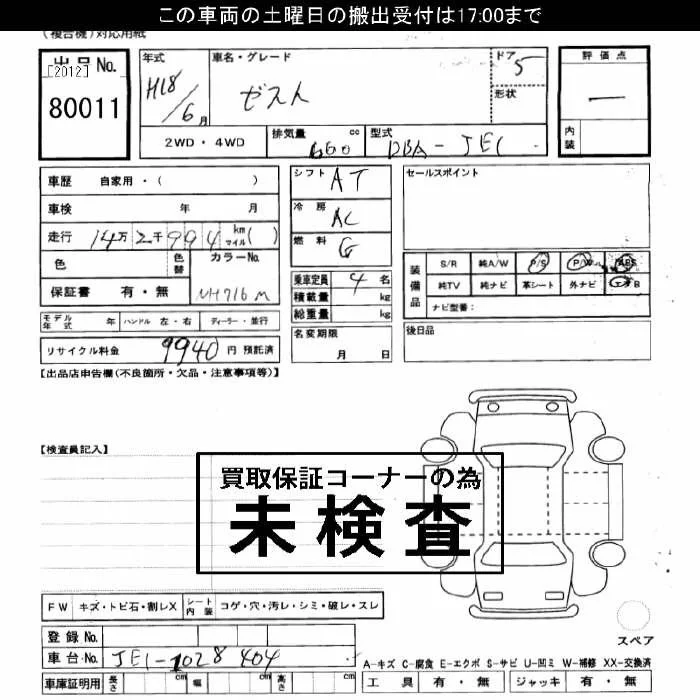 この車両の土曜日の搬出受付は17:00まで
(複合機)対応用紙
出品No.
[2012]
80011
年式 H18/6月
車名・グレード ゼスト
ドア 5
形状
評価点 —
内装
2WD・4WD
排気量 660 cc
型式 DBA-JE1
車歴 自家用・( )
車検 年 月
走行 14万2千994 km マイル( )
色
色替
カラーNo. NH716M
保証書 有・無
シフト AT
冷房 AC
燃料 G
セールスポイント
装備品
S/R 純A/W P/S P/W ABS
純TV 純ナビ 革シート 外ナビ エアB
ナビ型番:
乗車定員 4名
積載量 kg
総重量 kg
モデル年式 年 ハンドル 左・右 ディーラー・並行
名変期限 月 日
後日品
リサイクル料金 9940円 預託済
【出品店申告欄(不良箇所・欠品・注意事項等)】
【検査員記入】
買取保証コーナーの為
未検査
FW キズ・トビ石・割レX シート内装 コゲ・穴・汚レ・シミ・破レ・スレ
スペア
登録No.
車台No. JE1-1028404
A-キズ C-腐食 E-エクボ S-サビ U-凹ミ W-補修 XX-交換済
車庫証明用 長さ cm 幅 cm 高さ cm
工具 有・無 ジャッキ 有・無